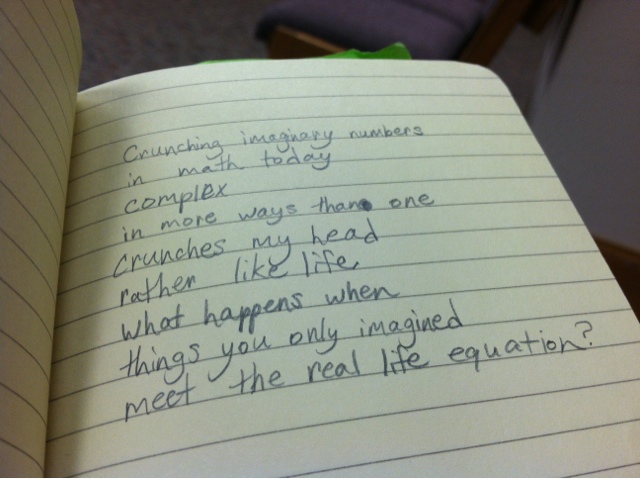 Crunching imaginary numbers
in math today
complex
in more ways than one
crunches my head
rather like life
what happens when
things you only imagined
meet the real life equation?